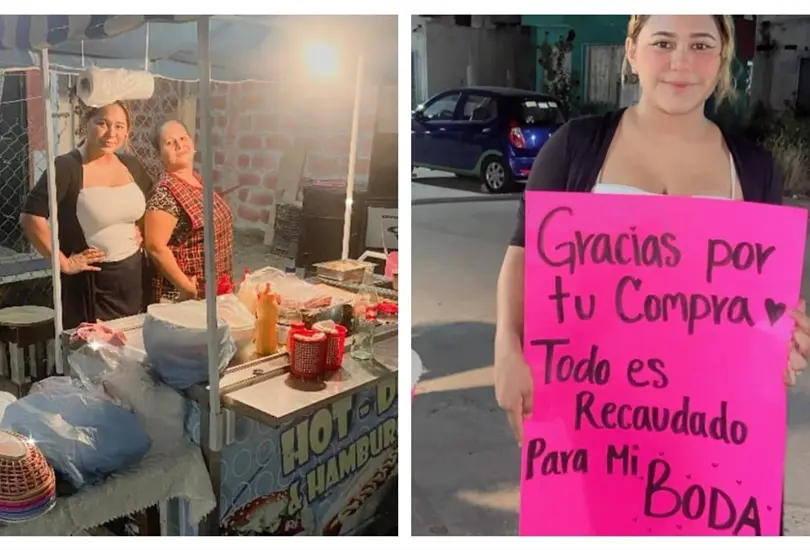 HOT-D
& HAMBUR
Gracias por
tu Compra ♥
Todo es
Recaudado
Para Mi
BODA